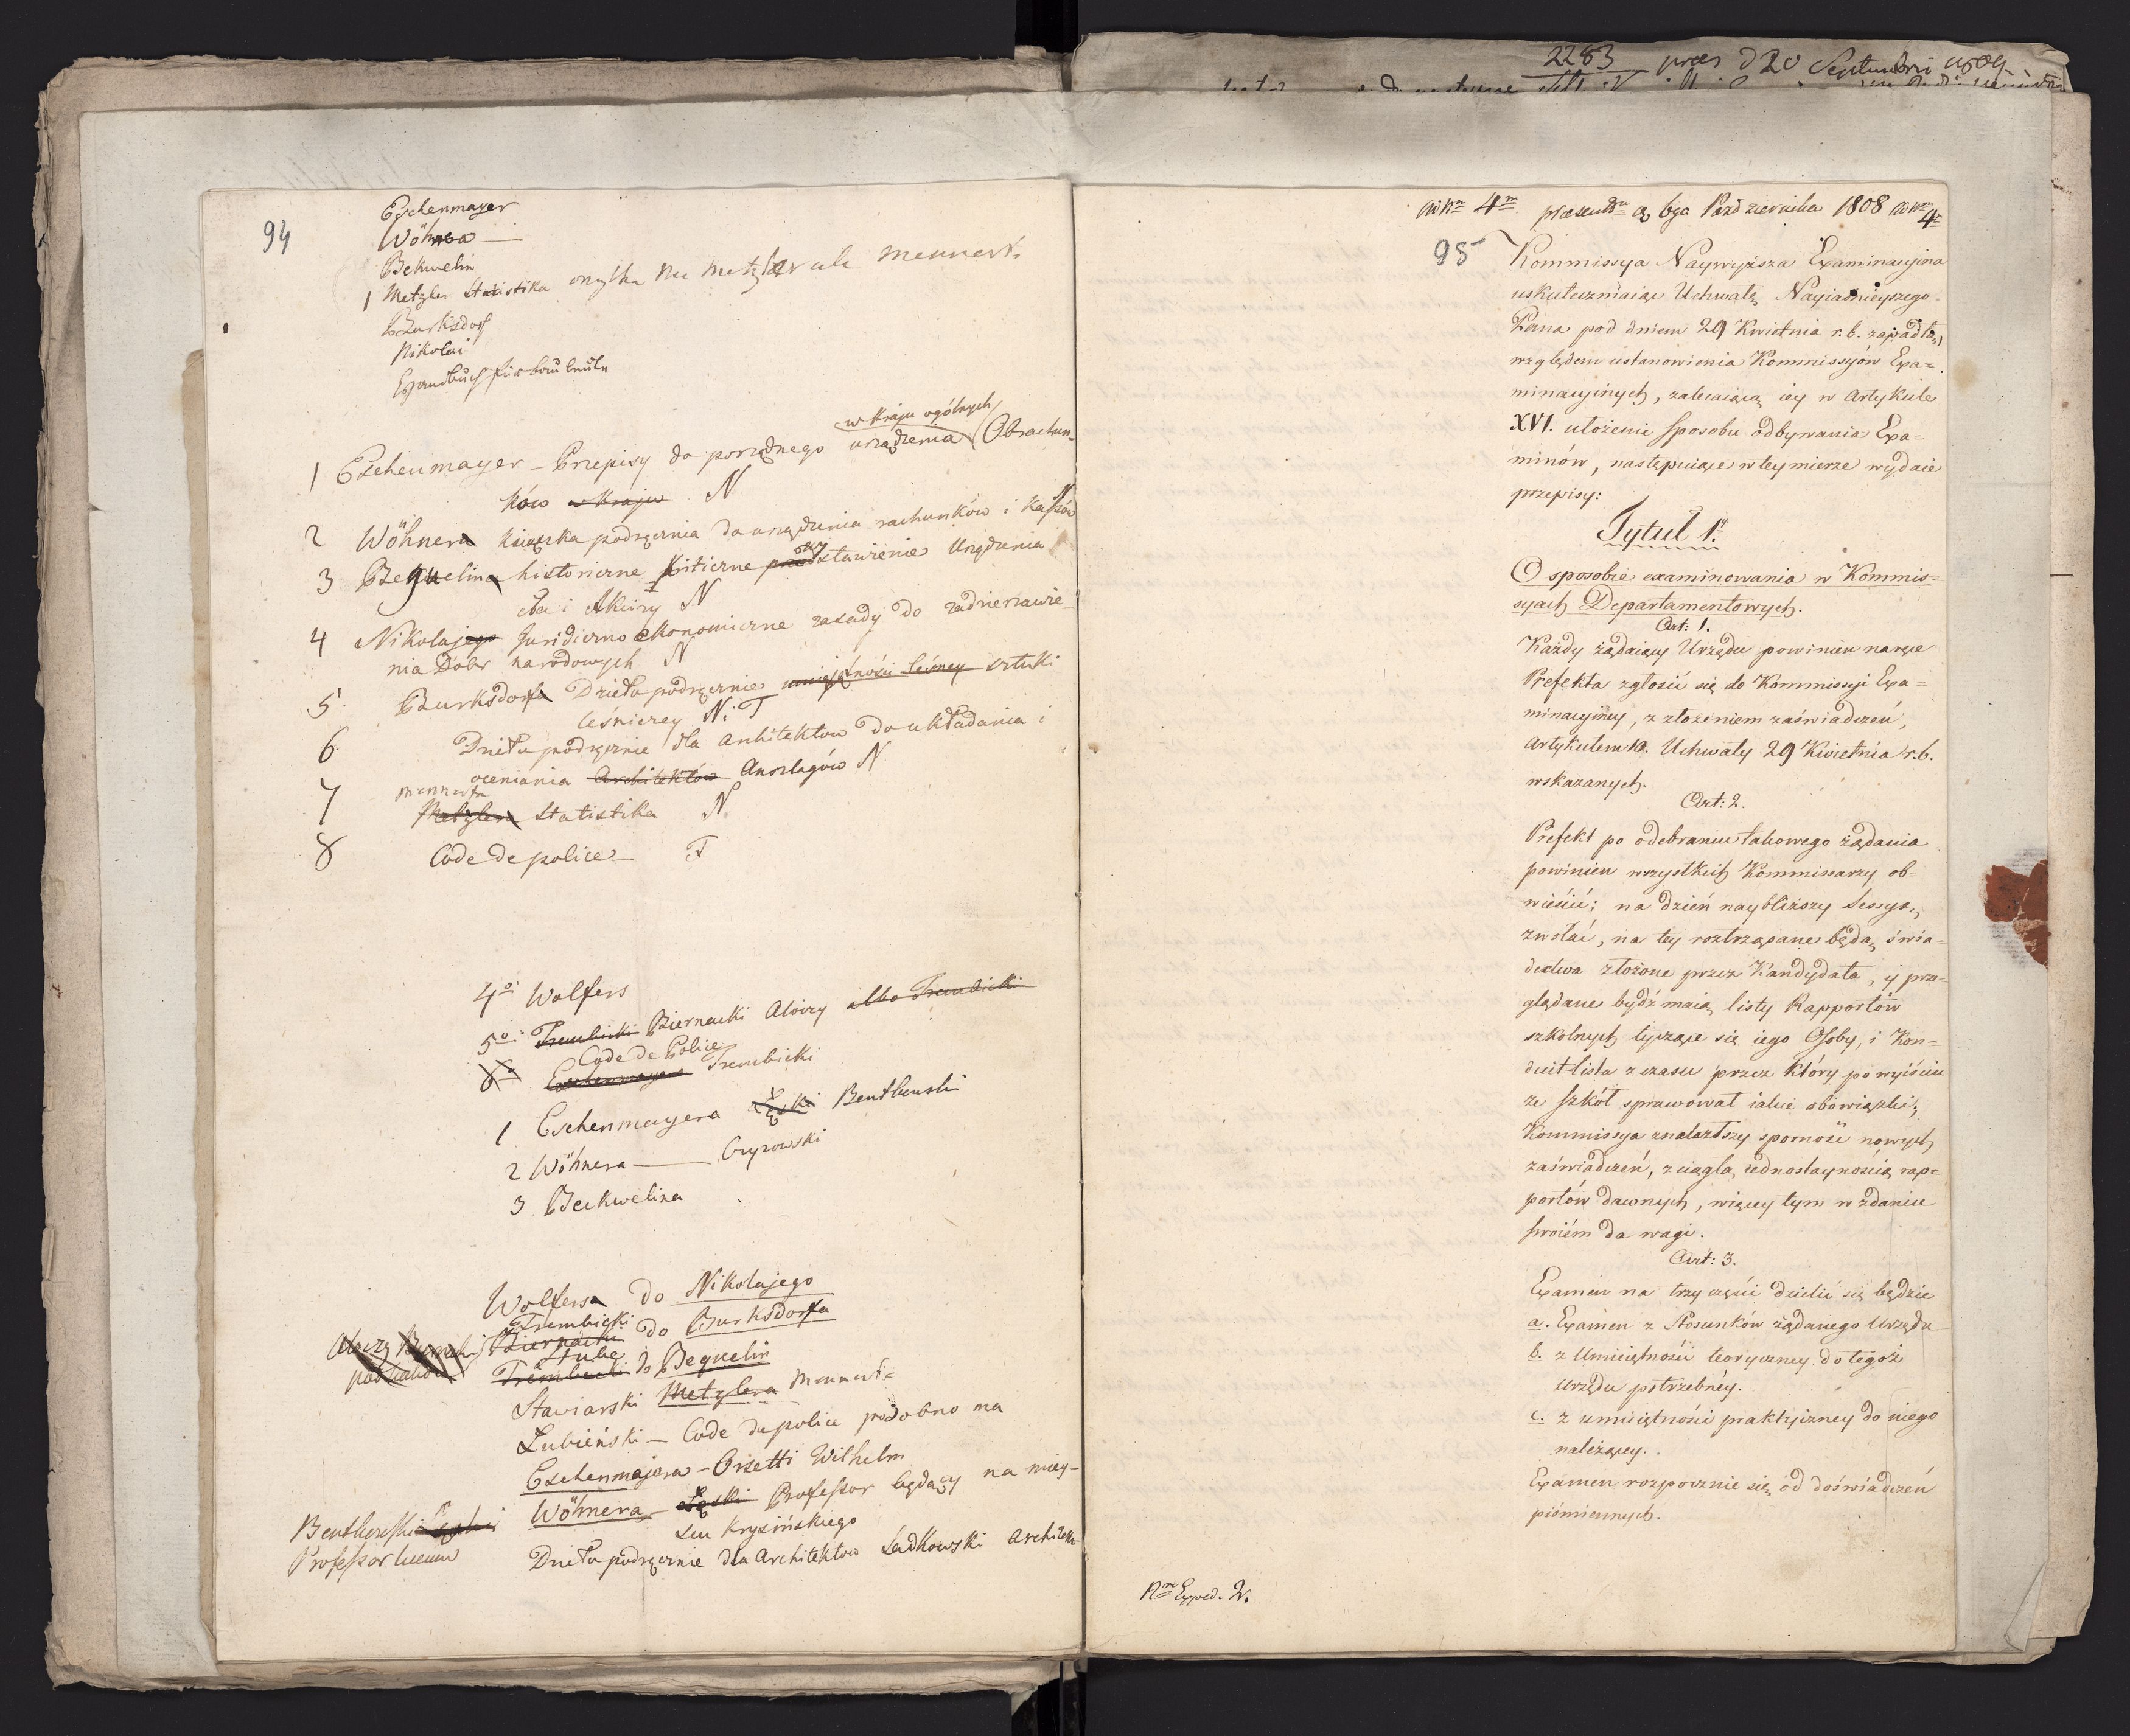 2283 praes d 20 Septembri 1809
94
Eschenmayer
Wöhnera —
Bekwelin
1 Metzler Statistika omyłka nie Metzlera ale Mennerta
Burksdorf
Nikolai
Handbuch für bauleute
w Kraju ogólnych
1 Eschenmayer – Przepisy do porządnego urządzenia Obrachun-
ków w Kraju N
2 Wöhnera książka podręcznia do urządzenia rachunków i Kassów N
3 Bequelina historiczne kriticzne przedstawienie Urządzenia
cła i Akcizy N
4 Nikolajego Juridiczno ekonomiczne zasady do zadzierzawie-
nia Dóbr narodowych N
5. Burksdorfa Dzieło podręcznie umiejętności leśney sztuki
leśniczey N. T
6. Dzieło podręcznie dla Architektow do układania i
oceniania Architektów Anszlagów N
mennerta
7 Metzlera Statistika N.
8 Code de police — F
4o Wolfers
5o: Trembicki Biernacki Aloizy albo Trembicki
Code de Police
6o Eschenmayera Trembicki
1 Eschenmayera Łęski Bentkowski
2 Wöhnera —— Gryzowski
3 Beckwelina
Wolfersa do Nikolajego
Trembicki
Aloizy Biernacki Biernacki do Burksdorfa
Stube
Trembicki do Bequelin
Stawiarski Metzlera Mennerta
Łubieński — Code de police podobno ma
Eschenmajera – Orsetti Wilhelm
Wöhnera – Łęski Professor będący na miey-
scu Krysińskiego
Bentkowski Łęski
Professor Liceum
Dzieło podręcznie dla Architektow Sadkowski Architekt
ad Nm 4m praesentn d 6go Pazdziernika 1808 ad Nm 4m
95
Kommissya Naywyższa Examinacyina
uskuteczniaiąc Uchwałę Nayiaśnieyszego
Pana pod dniem 29 Kwietnia r. b. zapadłą,
względem ustanowienia Kommissyów Exa=
minacyinych, zalecaiącą iey w Artykule
XVI. ułożenie sposobu odbywania Exa=
minów, następuiące w tey mierze wydaie
przepisy:
Tytuł 1.y
O sposobie examinowania w Kommis=
syach Departamentowych.
Art: 1.
Każdy żądaiący Urzędu powinien naręce
Prefekta zgłosić się do Kommissyi Exa=
minacyiney, z złożeniem zaświadczeń,
Artykułem 10. Uchwały 29 Kwietnia r. b.
wskazanych.
Art: 2.
Prefekt po odebraniu takowego żądania
powinien wszystkich Kommissarzy ob-
wieścić; na dzień naybliższy Sessyą,
zwołać, na tey roztrząsane będą świa-
dectwa złożone przez Kandydata, y prze-
glądane bydź maią listy Rapportów
szkolnych tyczące się iego Osoby, i Kon-
duit-lista z czasu przez który po wyjściu
ze szkół sprawował iakie obowiązki;
Kommissya znalazłszy sporność nowych
zaświadczeń, z ciągłą iednostaynością rap-
portów dawnych, więcey tym w zdaniu
swoiém da wagi.
Art: 3.
Examen na trzy części dzielić się będzie
a. Examen z Stosunków żądanego Urzędu
b. z Umieiętności teoryczney do tegoż
urzędu potrzebnéy.
c. z umieiętności praktyczney do niego
należącey.
Examen rozpocznie się od doświadczeń
piśmiennych.
Nro Exped. 2.